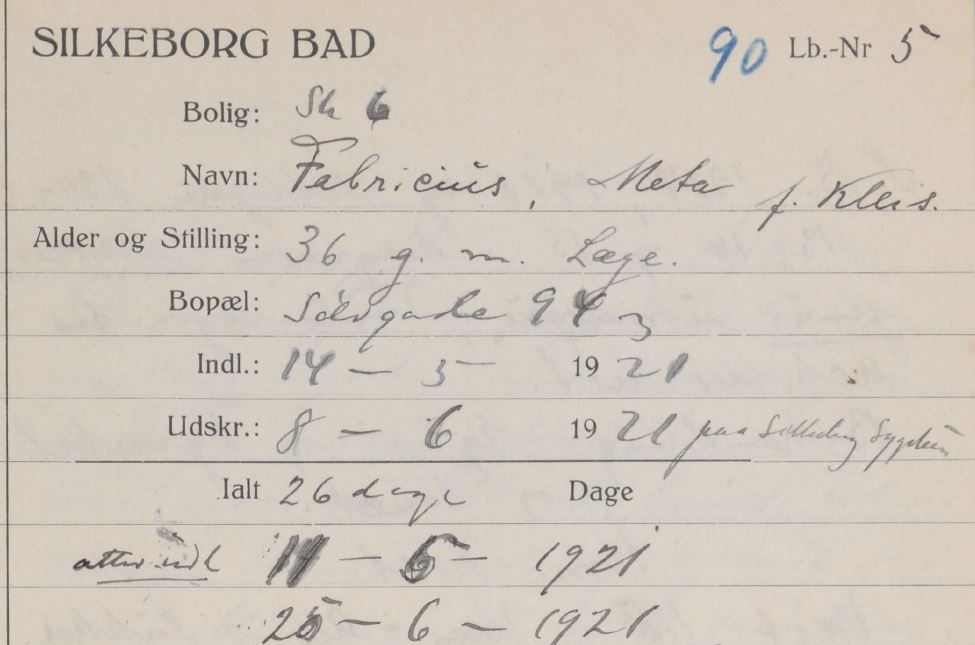 SILKEBORG BAD 90 Lb.-Nr 5
Bolig: Sh 6
Navn: Fabricius, Meta f. Kleis.
Alder og Stilling: 36 g. m. Læge.
Bopæl: Sølvgade 94 3
Indl.: 14 – 5 1921
Udskr.: 8 – 6 1921 paa Silkeborg Sygehus
Ialt 26 dage Dage
atter indl – 6 – 1921
25 – 6 – 1921